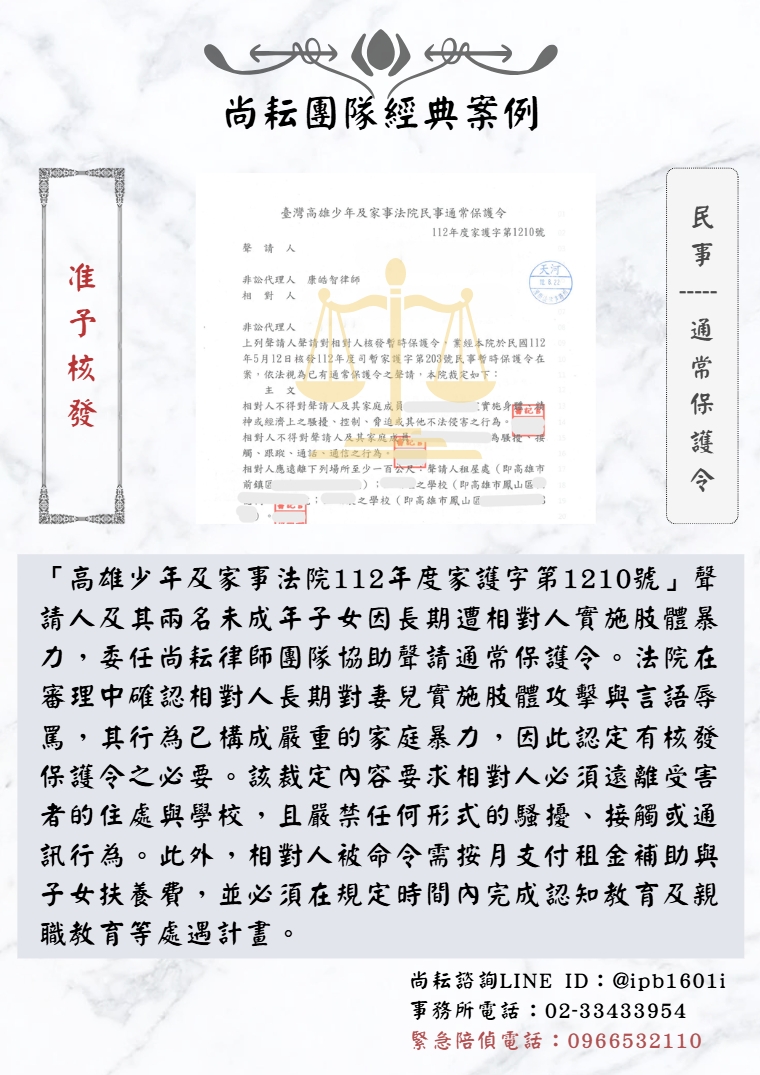 尚耘團隊經典案例
准予核發
臺灣高雄少年及家事法院民事通常保護令
112年度家護字第1210號
聲請人
非訟代理人 康皓智律師
相對人
非訟代理人
上列聲請人聲請對相對人核發暫時保護令，業經本院於民國112
年5月12日核發112年度司暫家護字第203號民事暫時保護令在
案，依法視為已有通常保護令之聲請，本院裁定如下：
主文
相對人不得對聲請人及其家庭成員 實施身體、精
神或經濟上之騷擾、控制、脅迫或其他不法侵害之行為。
相對人不得對聲請人及其家庭成員 為騷擾、接
觸、跟蹤、通話、通信之行為。
相對人應遠離下列場所至少一百公尺：聲請人租屋處（即高雄市
前鎮區 ）； 之學校（即高雄市鳳山區
； 之學校（即高雄市鳳山區
）。
天河
書記官
書記官
書記官
民事-----通常保護令
「高雄少年及家事法院112年度家護字第1210號」聲
請人及其兩名未成年子女因長期遭相對人實施肢體暴
力，委任尚耘律師團隊協助聲請通常保護令。法院在
審理中確認相對人長期對妻兒實施肢體攻擊與言語辱
罵，其行為已構成嚴重的家庭暴力，因此認定有核發
保護令之必要。該裁定內容要求相對人必須遠離受害
者的住處與學校，且嚴禁任何形式的騷擾、接觸或通
訊行為。此外，相對人被命令需按月支付租金補助與
子女扶養費，並必須在規定時間內完成認知教育及親
職教育等處遇計畫。
尚耘諮詢LINE ID：@ipb1601i
事務所電話：02-33433954
緊急陪偵電話：0966532110